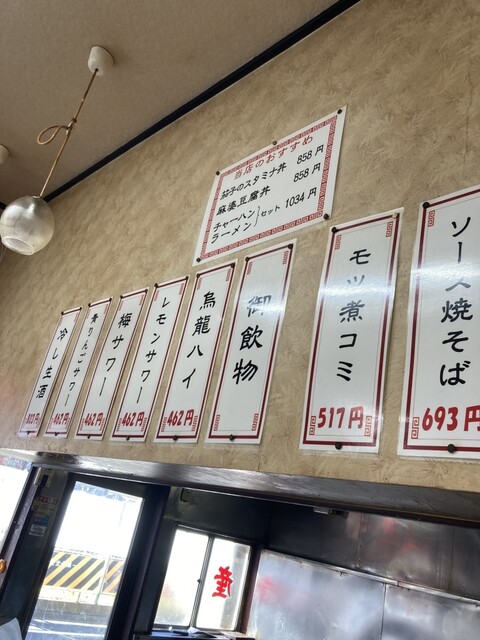 当店のおすすめ
茄子のスタミナ丼 858円
麻婆豆腐丼 858円
チャーハン
ラーメン
セット 1034円
ソース焼そば
693円
モツ煮コミ
517円
御飲物
烏龍ハイ
462円
レモンサワー
462円
梅サワー
462円
青りんごサワー
462円
冷し生酒
産